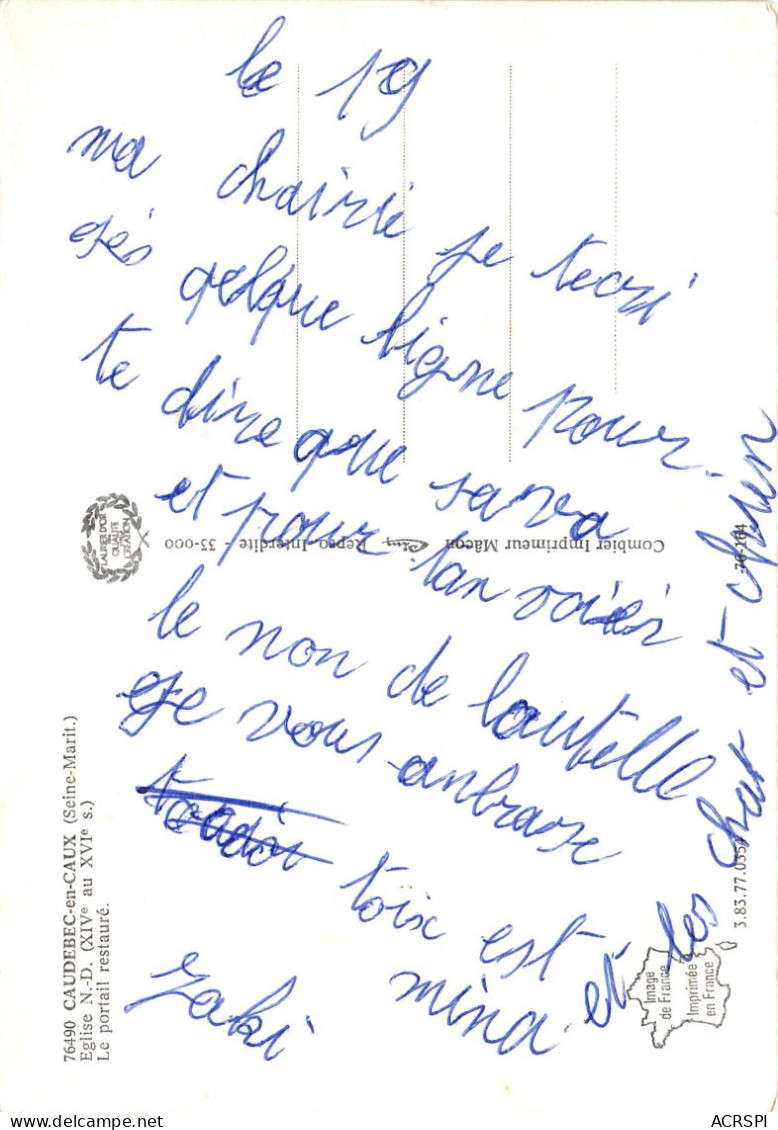 le 19
ma chairie je tecri
gés qelque ligne pour
te dire que sa va
et pour tan voier
le non de lautelle
Je vous anbrase
toix est
mina et les chat et chien
Jaki
76490 CAUDEBEC-en-CAUX (Seine-Marit.)
Eglise N.-D. (XIVe au XVIe s.)
Le portail restauré.
LAURIER D'OR
QUALITÉ
CREATION
Combier Imprimeur Mâcon
Repro Interdite - 33-000
76-104
3.83.77.0354
Image
de France
Imprimée
en France
ACRSPI